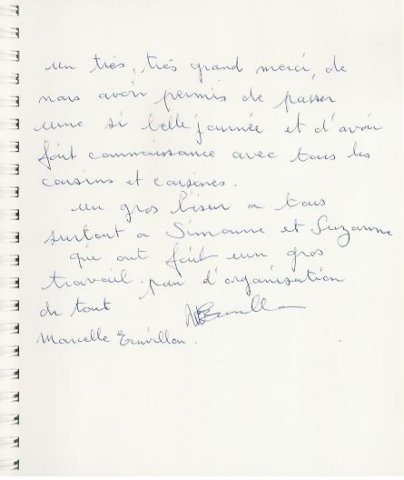 un très, très grand merci, de
nous avoir permis de passer
une si belle journée et d'avoir
fait connaissance avec tous les
cousins et cousines.
un gros bisou a tous
surtout a Simonne et Suzanne
qui ont fait un gros
travail. d'organisation
de tout
Marcelle